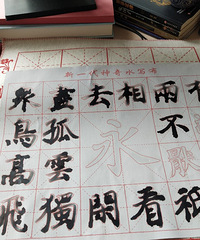 新一代神奇水写布
眾盡去相兩
鳥孤永不
高雲
飛獨閑看祗